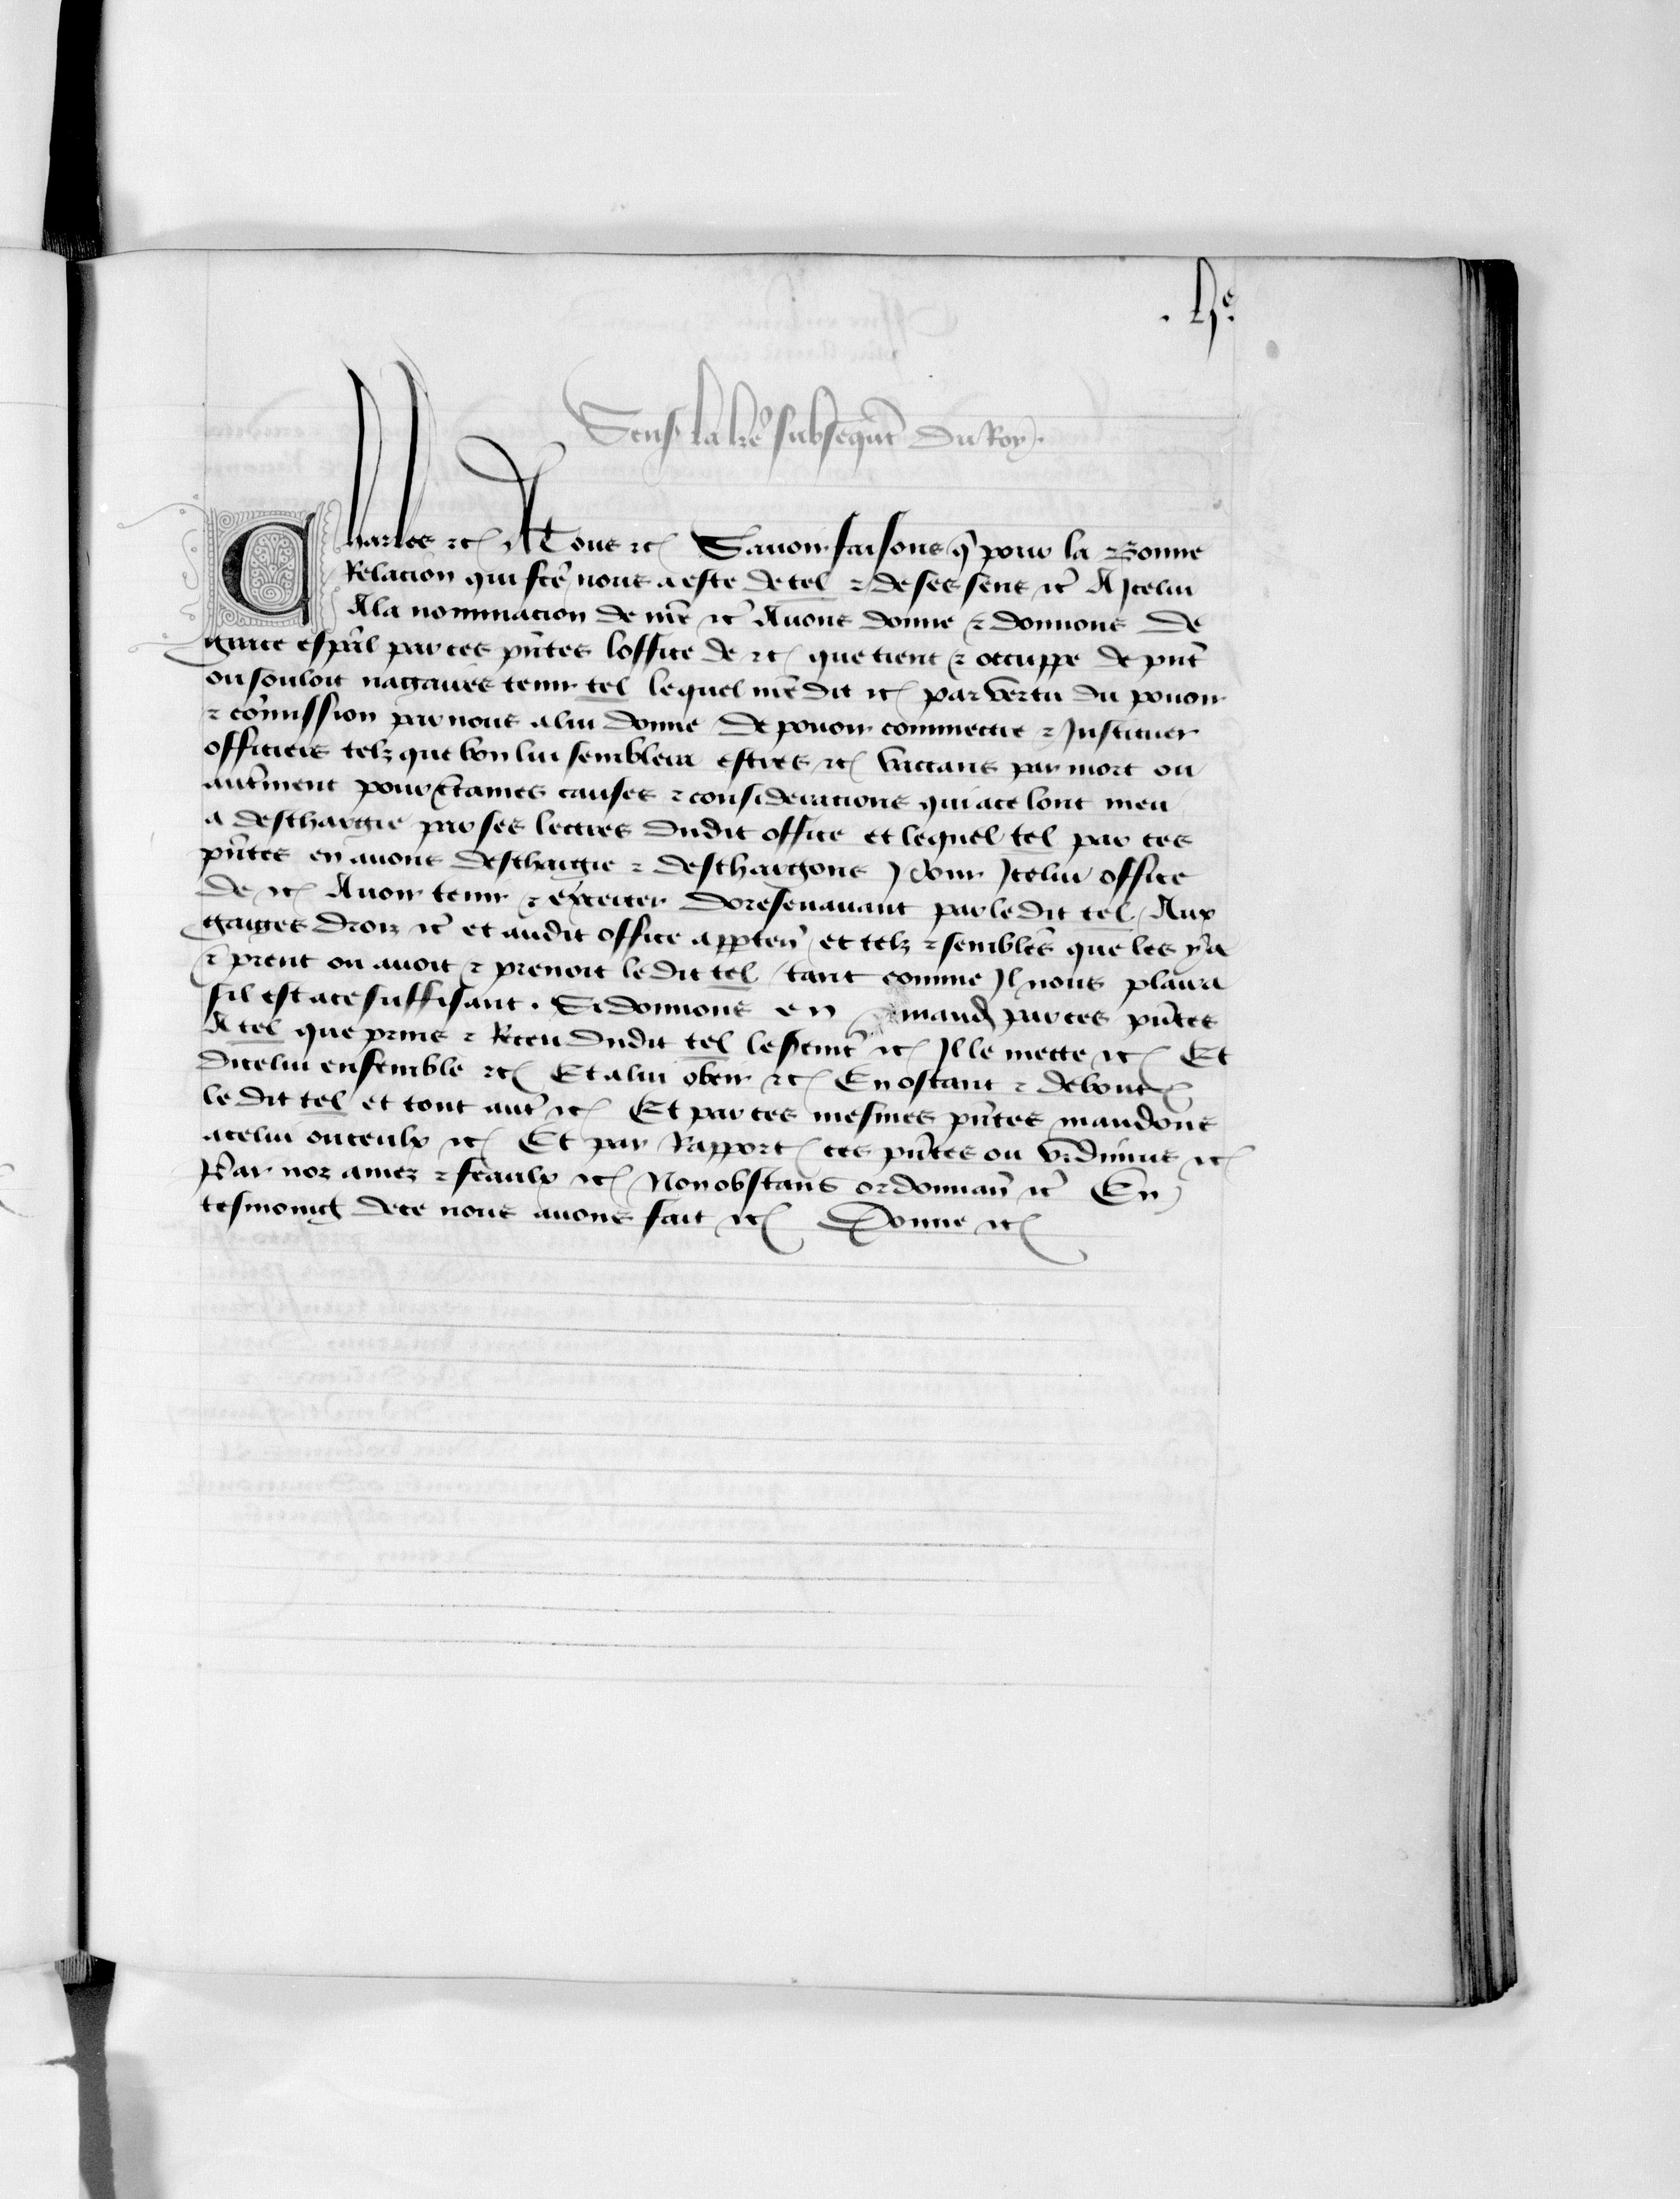 . lvᵉ.
Sens la lrẽ subsequẽt du Roy.
Charles ⁊c̃ A Tous ⁊c̃ Sauoir faisons q̃ pour la bonne
Relacion qui fcẽ nous a este de tel ⁊ de ses sens ⁊c̃ A Jcelui
A la nominacion de mẽ ⁊c̃ Auons donne ⁊ donnons de
grace esp̃al par ces pñtes loffice de ⁊c̃ que tient ⁊ occuppe de pñt
ou souloit nagaires tenir tel lequel mẽ dit ⁊c̃ par vertu du pouoir
⁊ cõmission par nous a lui donne de pouoir commectre ⁊ Instituer
officiers telz que bon lui semblera estres ⁊c̃ vaccans par mort ou
autr̃ment pour c̃taines causes ⁊ consideracions qui a ce lont meu
a deschargie par ses lectres dudit office et lequel tel par ces
pñtes en auons deschargie ⁊ deschargons Pour Jcelui office
de ⁊c̃ Auoir tenir ⁊ exercer doresenauant par le dit tel Aux
gaiges droiz ⁊c̃ et audit office apptẽn et telz ⁊ semblẽs que les y a
⁊ prent ou auoit ⁊ prenoit le dit tel tant comme Jl nous plaira
sil est a ce suffisant. Si donnons en mand̃ par ces pñtes
A tel que prins ⁊ Receu dudit tel le serm̃t ⁊c̃ Jl le mette ⁊c̃ Et
dicelui ensemble ⁊c̃ Et a lui obeir ⁊c̃ En ostant ⁊ debout̃
le dit tel et tout aut̃ ⁊c̃ Et par ces mesmes pñtes mandons
a celui ou ceulx ⁊c̃ Et par Rapport̃ ces pñtes ou vidimus ⁊c̃
Par noz amez ⁊ feaulx ⁊c̃ Nonobstans ordonnañ ⁊c̃ En
tesmoing de ce nous auons fait ⁊c̃ Donne ⁊c̃